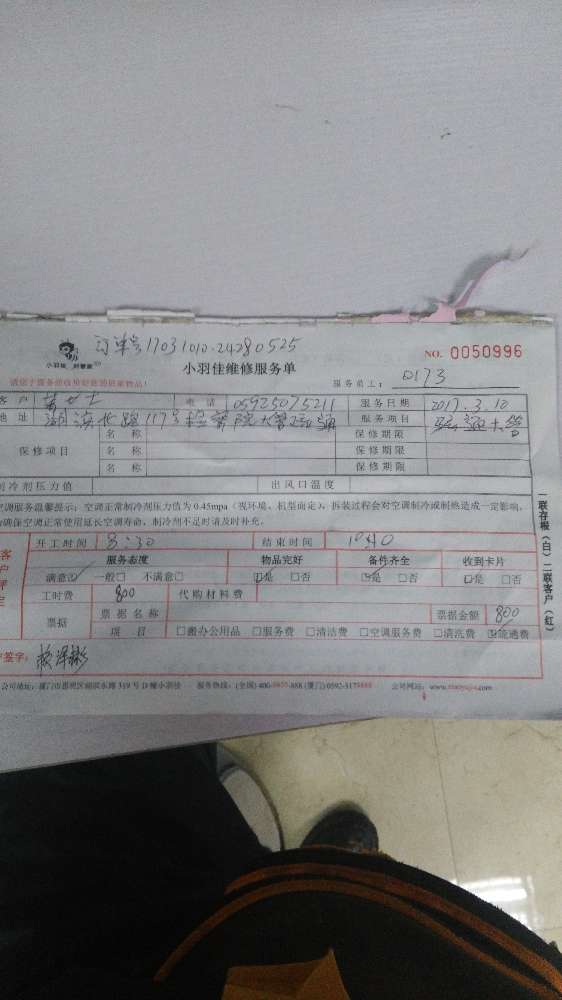 订单号17031010-24280525
小羽佳 好管家
小羽佳维修服务单
NO. 0050996
服务员工: 0173
客户 女士 电话 05925075211 服务日期 2017.3.10
地址 湖滨北路117号检察院大 服务项目 疏通大管
保修项目 名称 保修期限
名称 保修期限
名称 保修期限
制冷剂压力值 出风口温度
空调服务温馨提示:空调正常制冷剂压力值为0.45mpa(视环境、机型而定),拆装过程会对空调制冷或制热造成一定影响,
确保空调正常使用延长空调寿命,制冷剂不足时请及时补充。
开工时间 8:30 结束时间 1040
服务态度 物品完好 备件齐全 收到卡片
满意☑ 一般□ 不满意□ ☑是 □否 ☑是 □否 ☑是 □否
工时费 800 代购材料费
票据 票据名称 票据金额 800
项目 □搬办公用品 □服务费 □清洁费 □空调服务费 □清洗费 ☑疏通费
签字:
公司地址:厦门市思明区湖滨东路319号D幢小羽佳 服务热线:(全国)400- -888 (厦门)0592-517 公司网站:www.xiaoyujia.com
一联存根(白)二联客户(红)